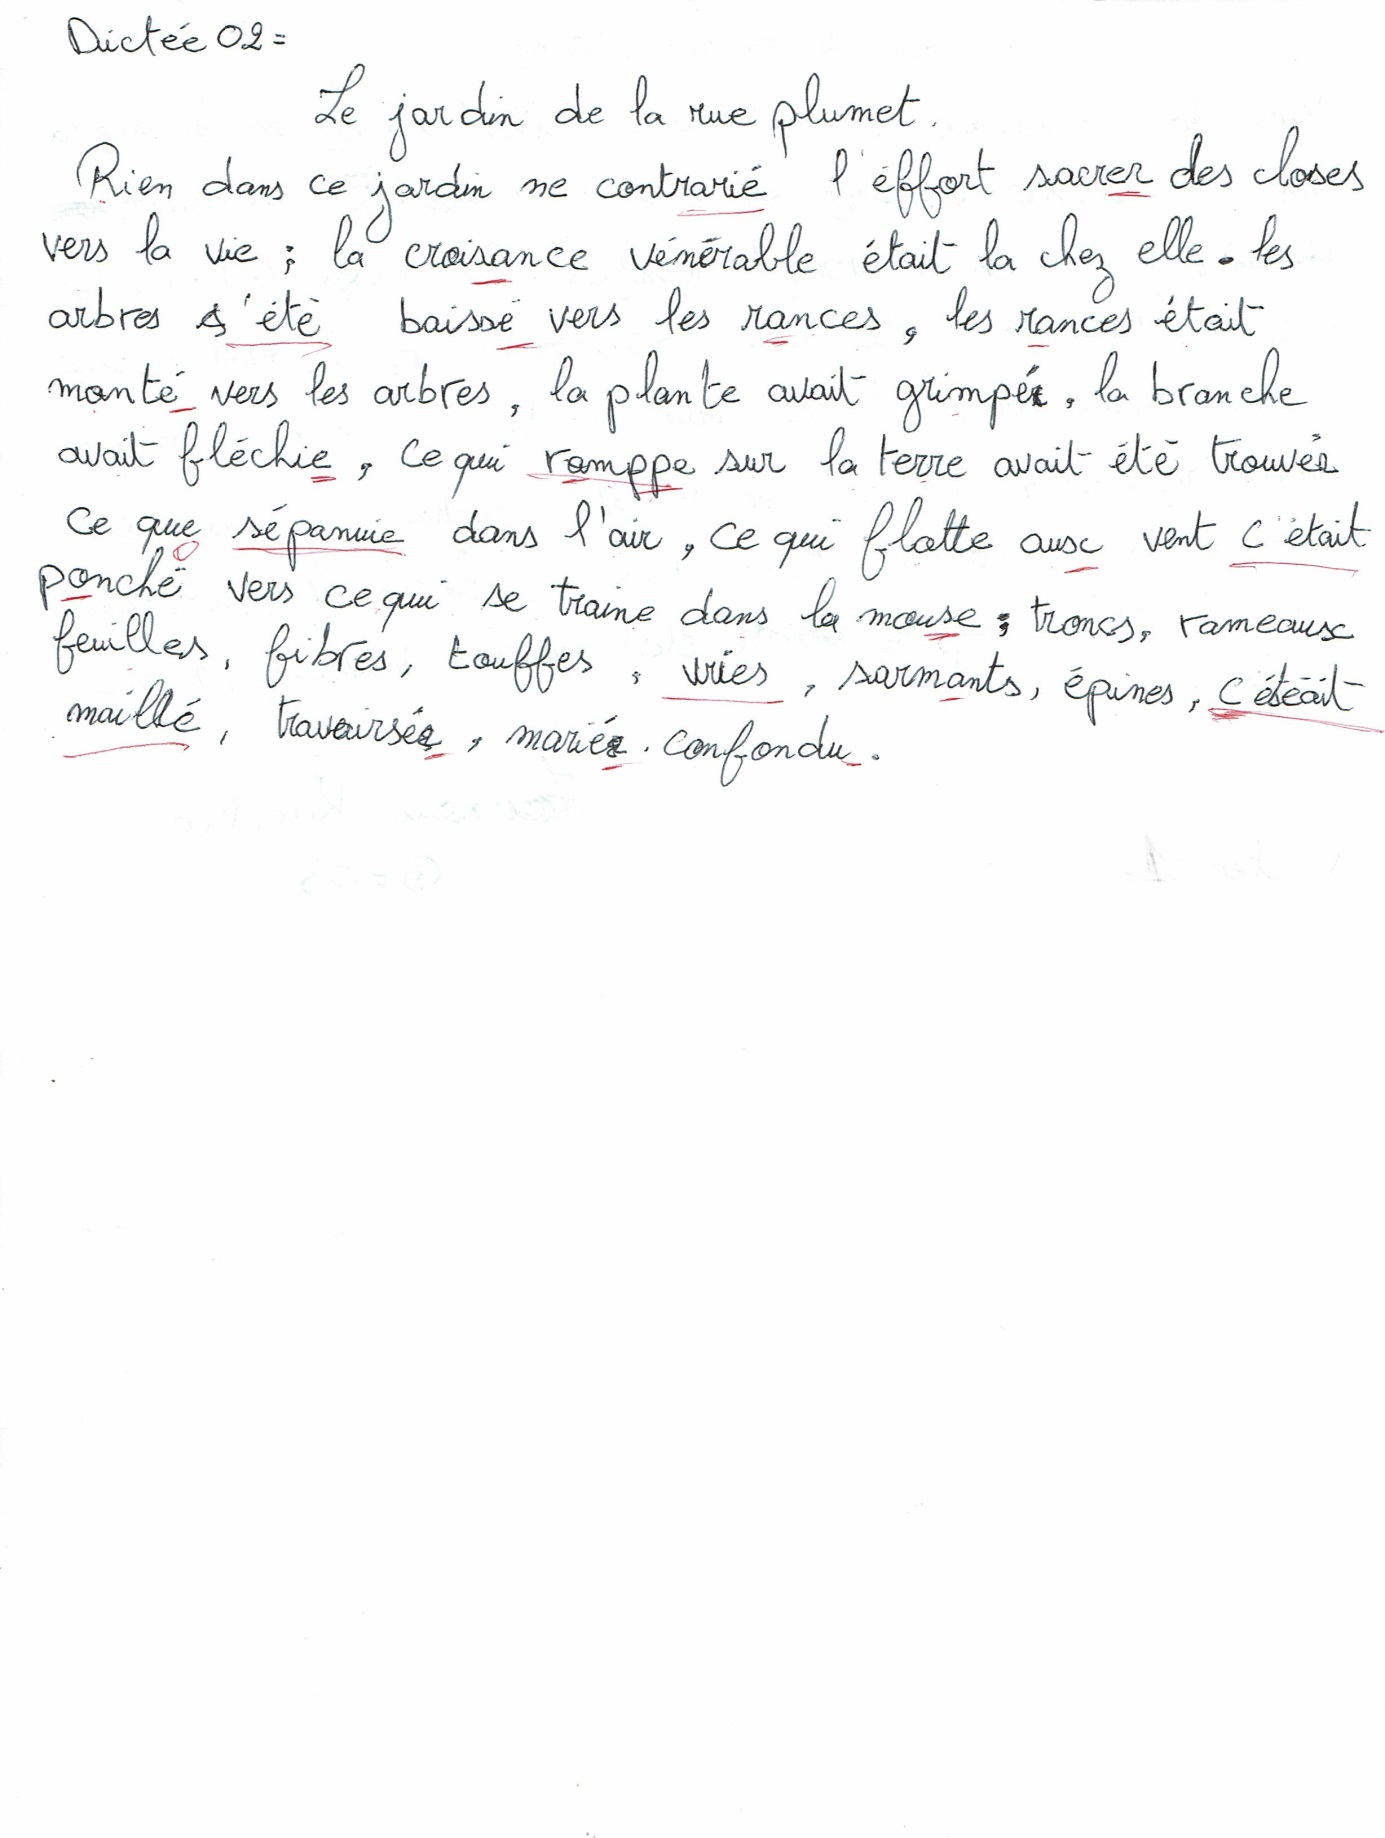 Dictée 02 =
Le jardin de la rue plumet.
Rien dans ce jardin ne contrarié l'éffort sacrer des closes
vers la vie ; la croisance vénérable était la chez elle. les
arbres s'été baissé vers les rances, les rances était
monté vers les arbres, la plante avait grimpé, la branche
avait fléchie, ce qui ramppe sur la terre avait été trouvés
ce que sépanuie dans l'air, ce qui flotte aux vent c'était
ponché vers ce qui se traine dans la mouse ; troncs, rameaux
feuilles, fibres, touffes, vries, sarmants, épines, c'éteait
maillé, travairsés, mariés. confondu.